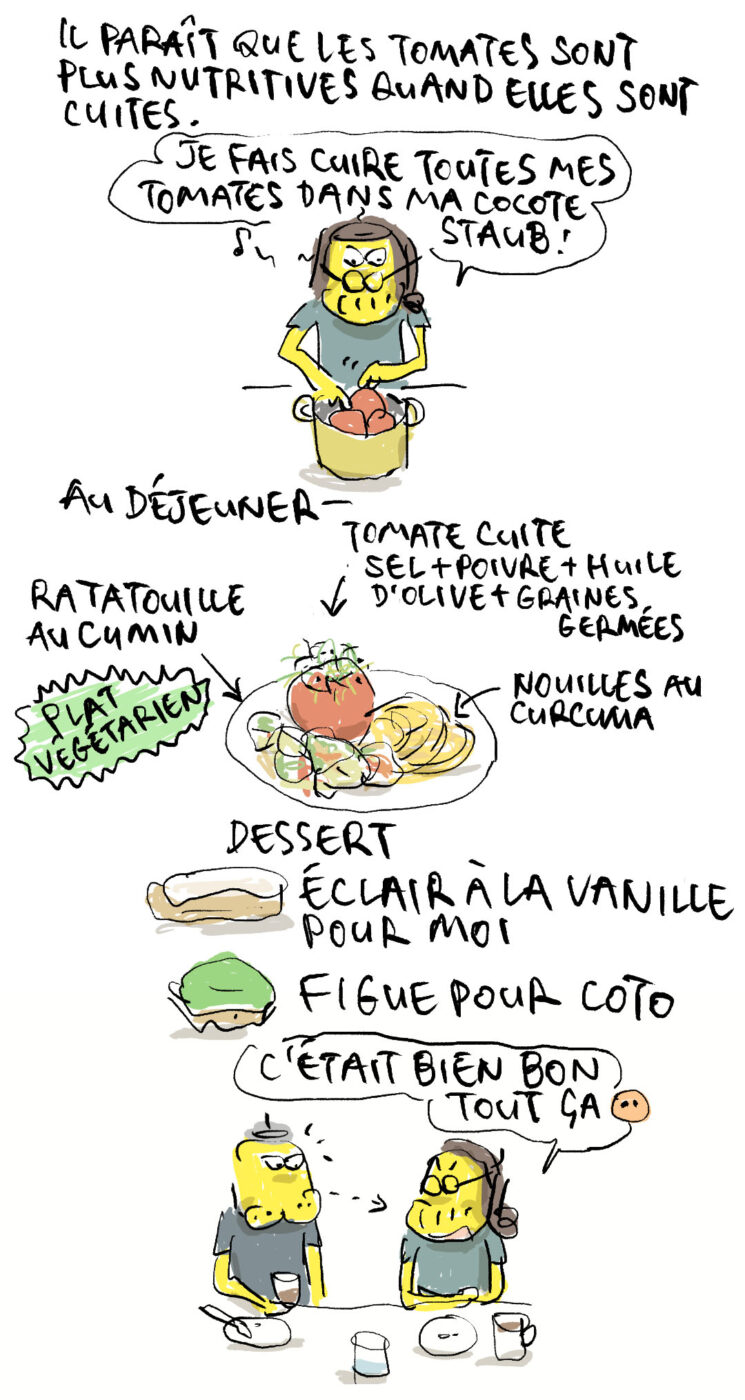 IL PARAÎT QUE LES TOMATES SONT
PLUS NUTRITIVES QUAND ELLES SONT
CUITES.
JE FAIS CUIRE TOUTES MES
TOMATES DANS MA COCOTE
STAUB!
AU DÉJEUNER—
TOMATE CUITE
SEL+POIVRE+HUILE
D'OLIVE+GRAINES
GERMÉES
RATATOUILLE
AU CUMIN
PLAT
VÉGÉTARIEN
NOUILLES AU
CURCUMA
DESSERT
ÉCLAIR À LA VANILLE
POUR MOI
FIGUE POUR COTO
C'ÉTAIT BIEN BON
TOUT ÇA